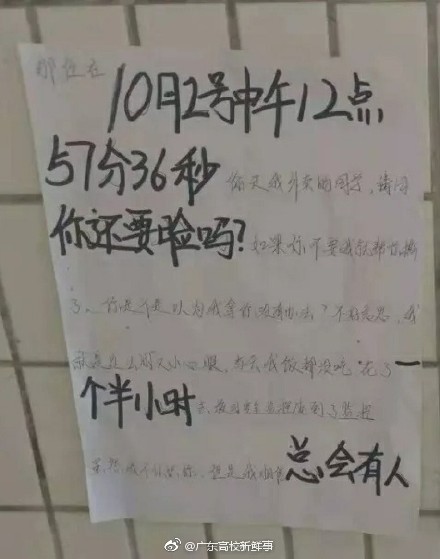 那位在
10月2号中午12点
57分36秒 偷走我外卖的同学,请问
你还要脸吗?如果你不要我能帮你撕
了。你是不是以为我拿你没有办法?不好意思,我
就是这么闲又小心眼,当天我饭都没吃 花了一
个半小时去
虽然我不认识你,但是我相信总会有人
@广东高校新鲜事